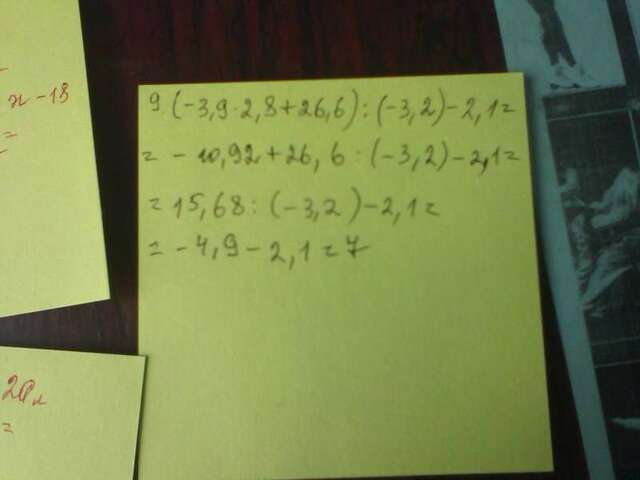 x-18
=
9 (-3,9·2,8+26,6):(-3,2)-2,1=
= -10,92+26,6:(-3,2)-2,1=
=15,68:(-3,2)-2,1=
=-4,9-2,1=7
=